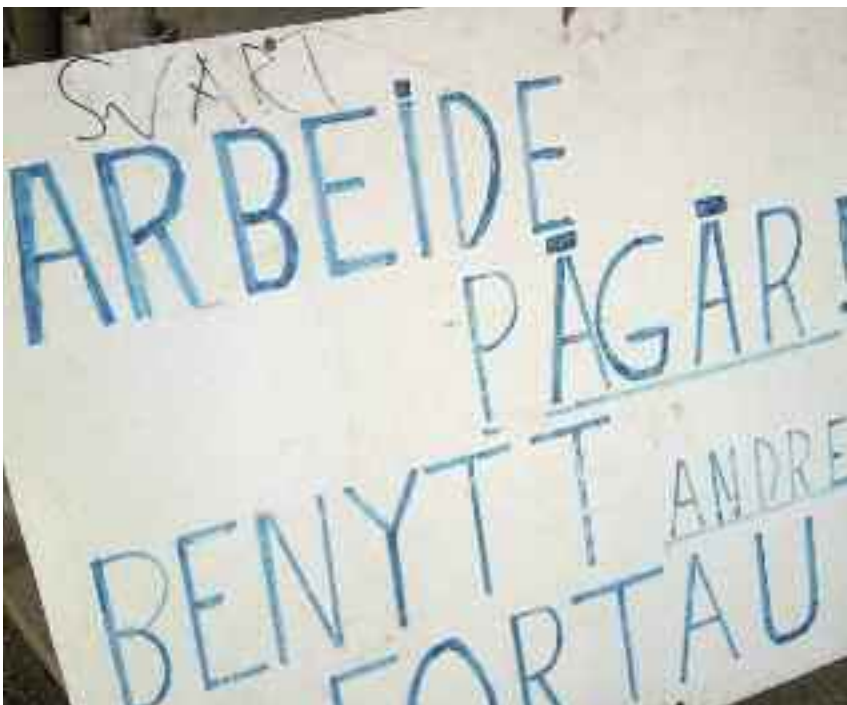 SVART
ARBEIDE
PÅGÅR!
BENYTT ANDRE
FORTAU